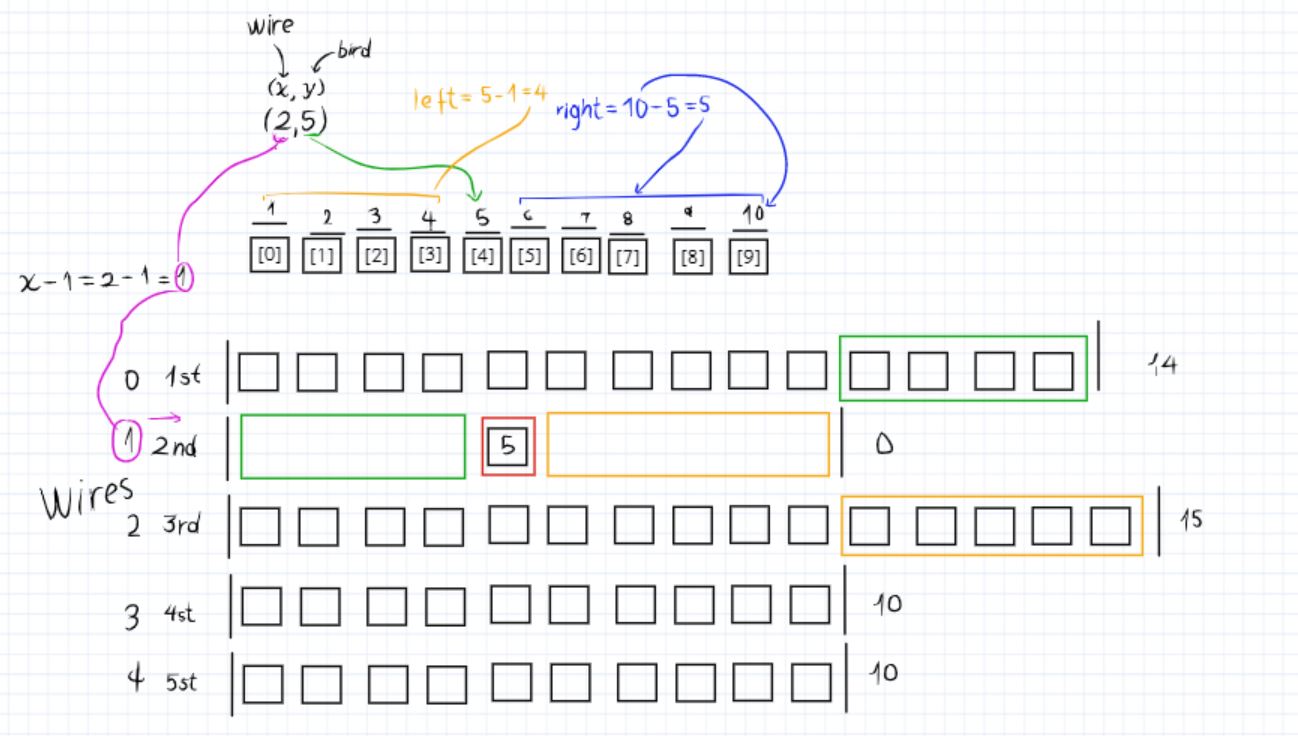 wire
bird
(x, y)
left = 5-1=4
right = 10-5=5
(2,5)
1 2 3 4 5 6 7 8 9 10
[0] [1] [2] [3] [4] [5] [6] [7] [8] [9]
x-1=2-1=1
0 1st 14
1 2nd 5 0
Wires
2 3rd 15
3 4st 10
4 5st 10